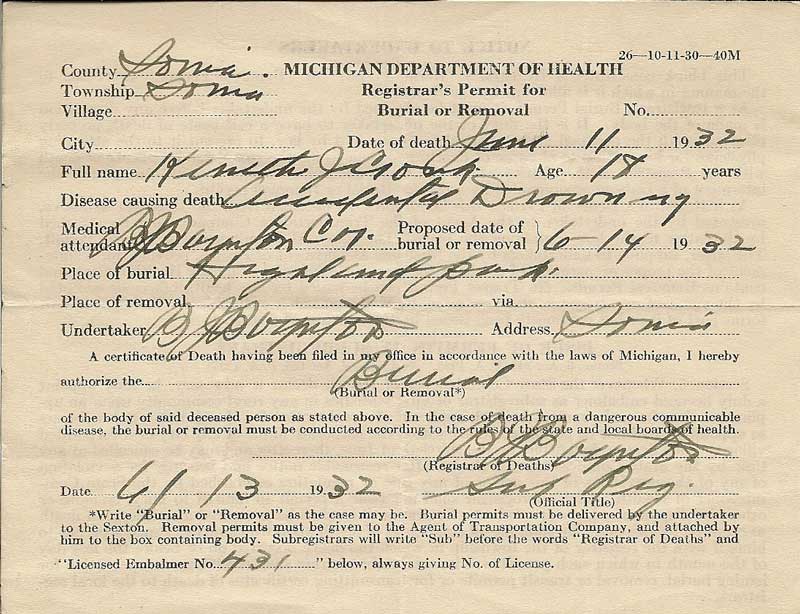 26—10-11-30—40M
County Ionia. MICHIGAN DEPARTMENT OF HEALTH
Township Ionia Registrar's Permit for
Village Burial or Removal No.
City Date of death June 11 1932
Full name Kenneth J Cronk Age 18 years
Disease causing death Accidental Drowning
Medical attendant B J Boynton Cor. Proposed date of burial or removal } 6-14 1932
Place of burial Highland park.
Place of removal via
Undertaker B J Boynton Address Ionia
A certificate of Death having been filed in my office in accordance with the laws of Michigan, I hereby
authorize the Burial
(Burial or Removal*)
of the body of said deceased person as stated above. In the case of death from a dangerous communicable
disease, the burial or removal must be conducted according to the rules of the state and local boards of health.
B J Boynton
(Registrar of Deaths)
Date 6/13 1932 Sub Reg.
(Official Title)
*Write "Burial" or "Removal" as the case may be. Burial permits must be delivered by the undertaker
to the Sexton. Removal permits must be given to the Agent of Transportation Company, and attached by
him to the box containing body. Subregistrars will write "Sub" before the words "Registrar of Deaths" and
"Licensed Embalmer No. 431 " below, always giving No. of License.